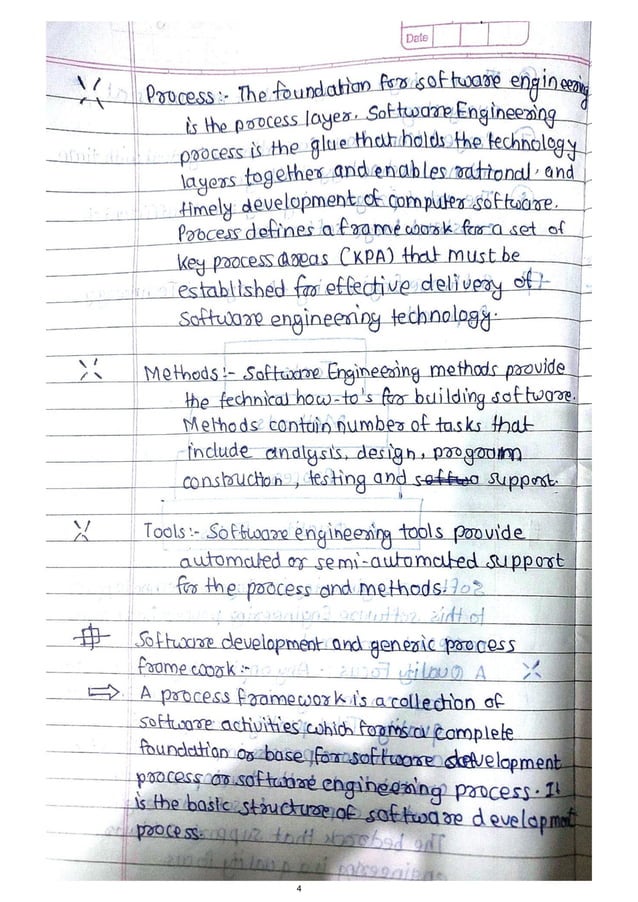 Date
Process:- The foundation for software engineering
is the process layer. Software Engineering
process is the glue that holds the technology
layers together and enables rational, and
timely development of computer software.
Process defines a framework for a set of
key process areas (KPA) that must be
established for effective delivery of
software engineering technology.
Methods:- Software Engineering methods provide
the technical how-to's for building software.
Methods contain number of tasks that
include analysis, design, program
construction, testing and support.
Tools:- Software engineering tools provide
automated or semi-automated support
for the process and methods.
Software development and generic process
frame work:-
⇒ A process framework is a collection of
software activities which forms a complete
foundation or base for software development
process or software engineering process. It
is the basic structure of software development
process.
4